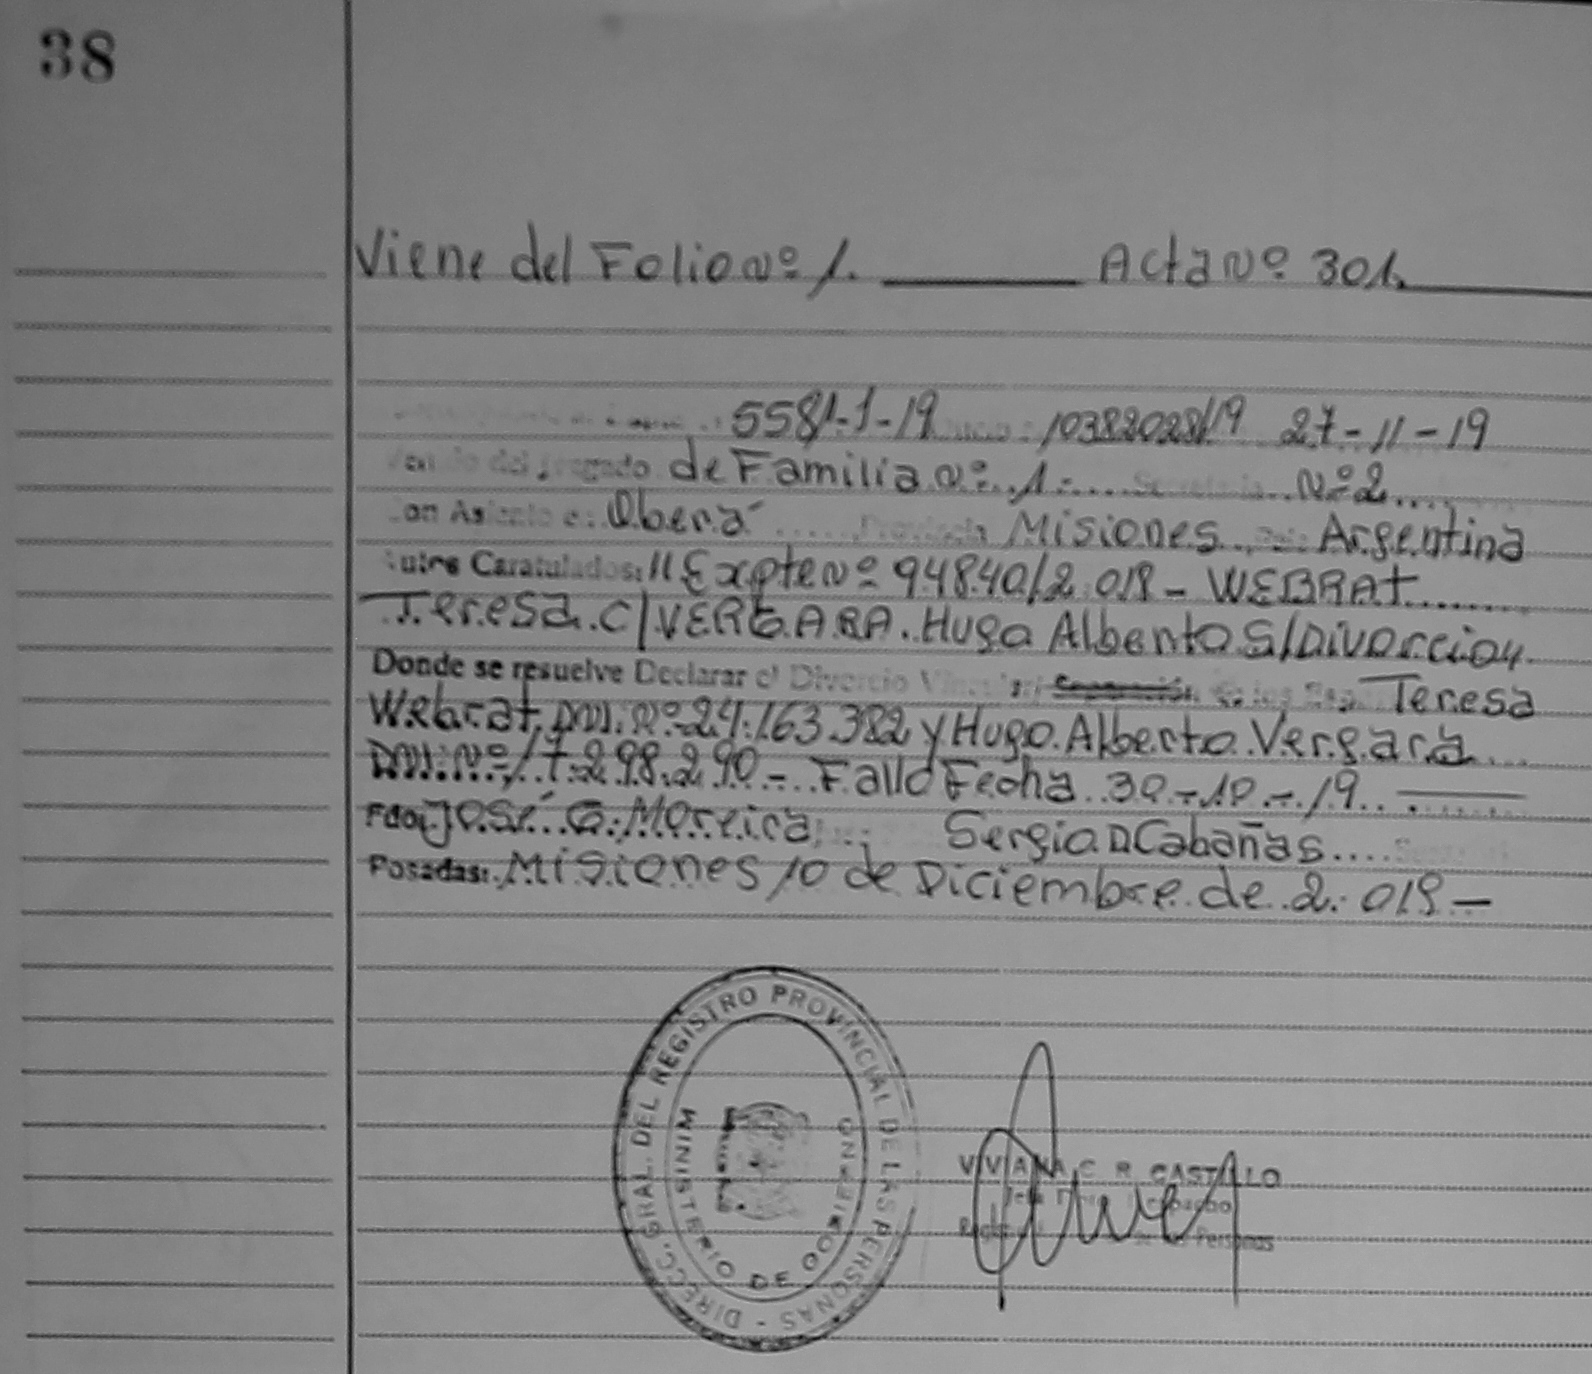 38
Viene del Folio Nº 1. Acta Nº 301.
5581-1-19 10382028/19 27-11-19
del Juzgado de Familia Nº 1 Nº 2
con Asiento e: Oberá Provincia Misiones Argentina
Autos Caratulados: "Expte Nº 94840/2.018 - WEBRAT
Teresa C/ VERGARA Hugo Alberto S/ Divorcio"
Donde se resuelve Declarar el Divorcio Vincular Teresa
Webrat, DNI. Nº 24.163.382 y Hugo Alberto Vergara
DNI. Nº 17.298.290 - Fallo Fecha 30-10-19
Fdo: José G. Moreira Sergio D Cabañas
Posadas: Misiones 10 de Diciembre de 2.019 -
DIRECC. GRAL. DEL REGISTRO PROVINCIAL DE LAS PERSONAS -
MINISTERIO DE GOBIERNO
VIVIANA C. R. CASTILLO
Personas